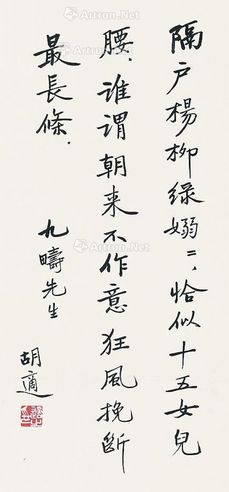 隔戶楊柳綠嫋〻，恰似十五女兒
腰。誰謂朝来不作意狂風挽斷
最長條．
九疇先生
胡適
Artron.Net